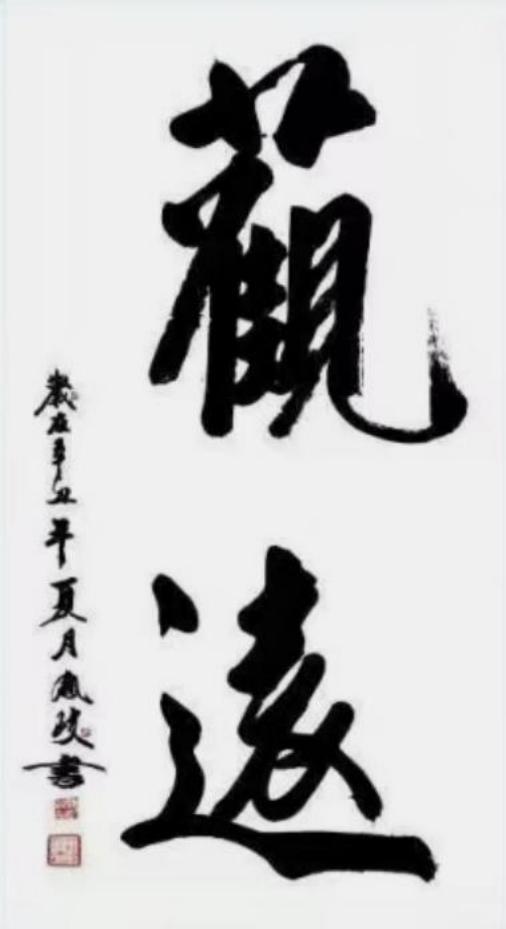 觀遠
歲在辛丑年夏月鳳岐書